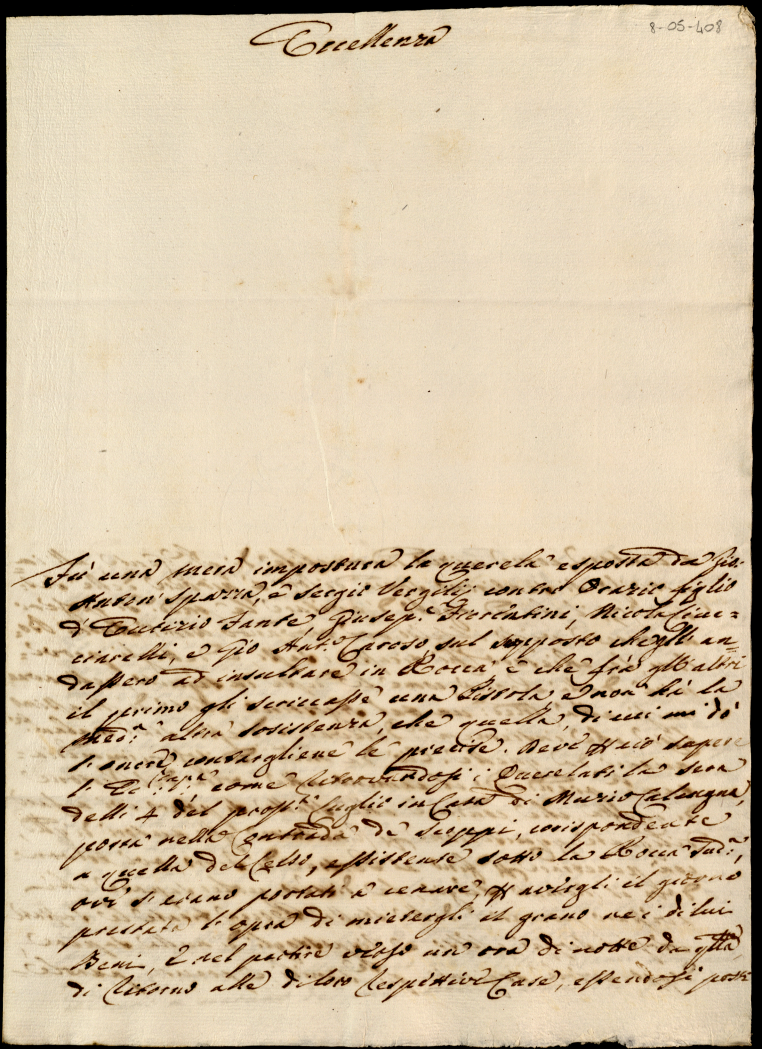 8-05-408
Eccellenza
Fù una mera impostura la querela esposta da Gio:
Anton Sparra, e Sergio Vergilij contro Orazio figlio
d' Eutizio Fante Giusep.e Fiorentini, Nicola Ciuc=
ciarelli, e Gio Ant.o Caroso, sul supposto che gli an=
dassero ad insultare in Rocca è che frà gli altri
il primo gli scriccasse una Pistola è non hà la
med.a altra sosistenza, che quella, di cui mi dò
l' onere contargliene le precise. Deve sapere
l' Ecc.za come ritrovandosi i Querelati la sera
delli 4 del pross.o Luglio in Casa di Muzio Calengna,
posta nella Contrada de Sceppi, corispondente
a quella del Celso, esistente sotto la Rocca sud.a,
ovi si erano portati à cenare, avergli il giorno
prestata l' opra di mietergli il grano ne i di lui
Beni, è nel partire verso un ora di notte da qlla
di ritorno alle di loro respittive Case, essendosi posti